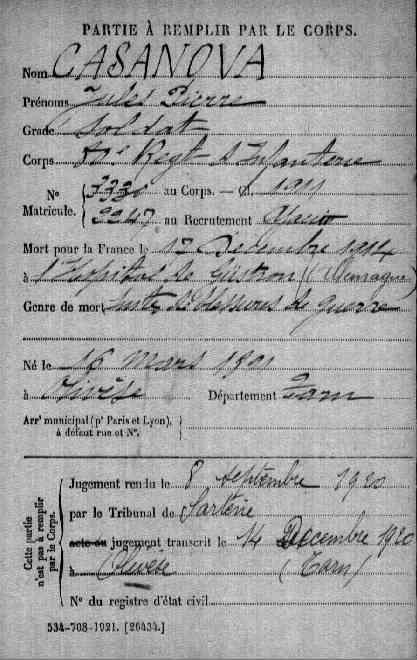 PARTIE À REMPLIR PAR LE CORPS.
Nom CASANOVA
Prénoms Jules Pierre
Grade Soldat
Corps Regt d'Infanterie
N° Matricule. au Corps. — Cl. 1911
2247 au Recrutement Ajaccio
Mort pour la France le 17 Décembre 1914
à l'Hopital de Gustrow (Allemagne)
Genre de mort Suites de blessures de guerre
Né le 16 mars 1891
à Olivèse Département Tarn
Arr' municipal (p' Paris et Lyon),
à défaut rue et N°.
Cette partie n'est pas à remplir par le Corps.
Jugement rendu le 8 septembre 1920
par le Tribunal de Sartène
acte ou jugement transcrit le 14 Décembre 1920
à Olivèse (Tarn)
N° du registre d'état civil
534-708-1921. [26434.]